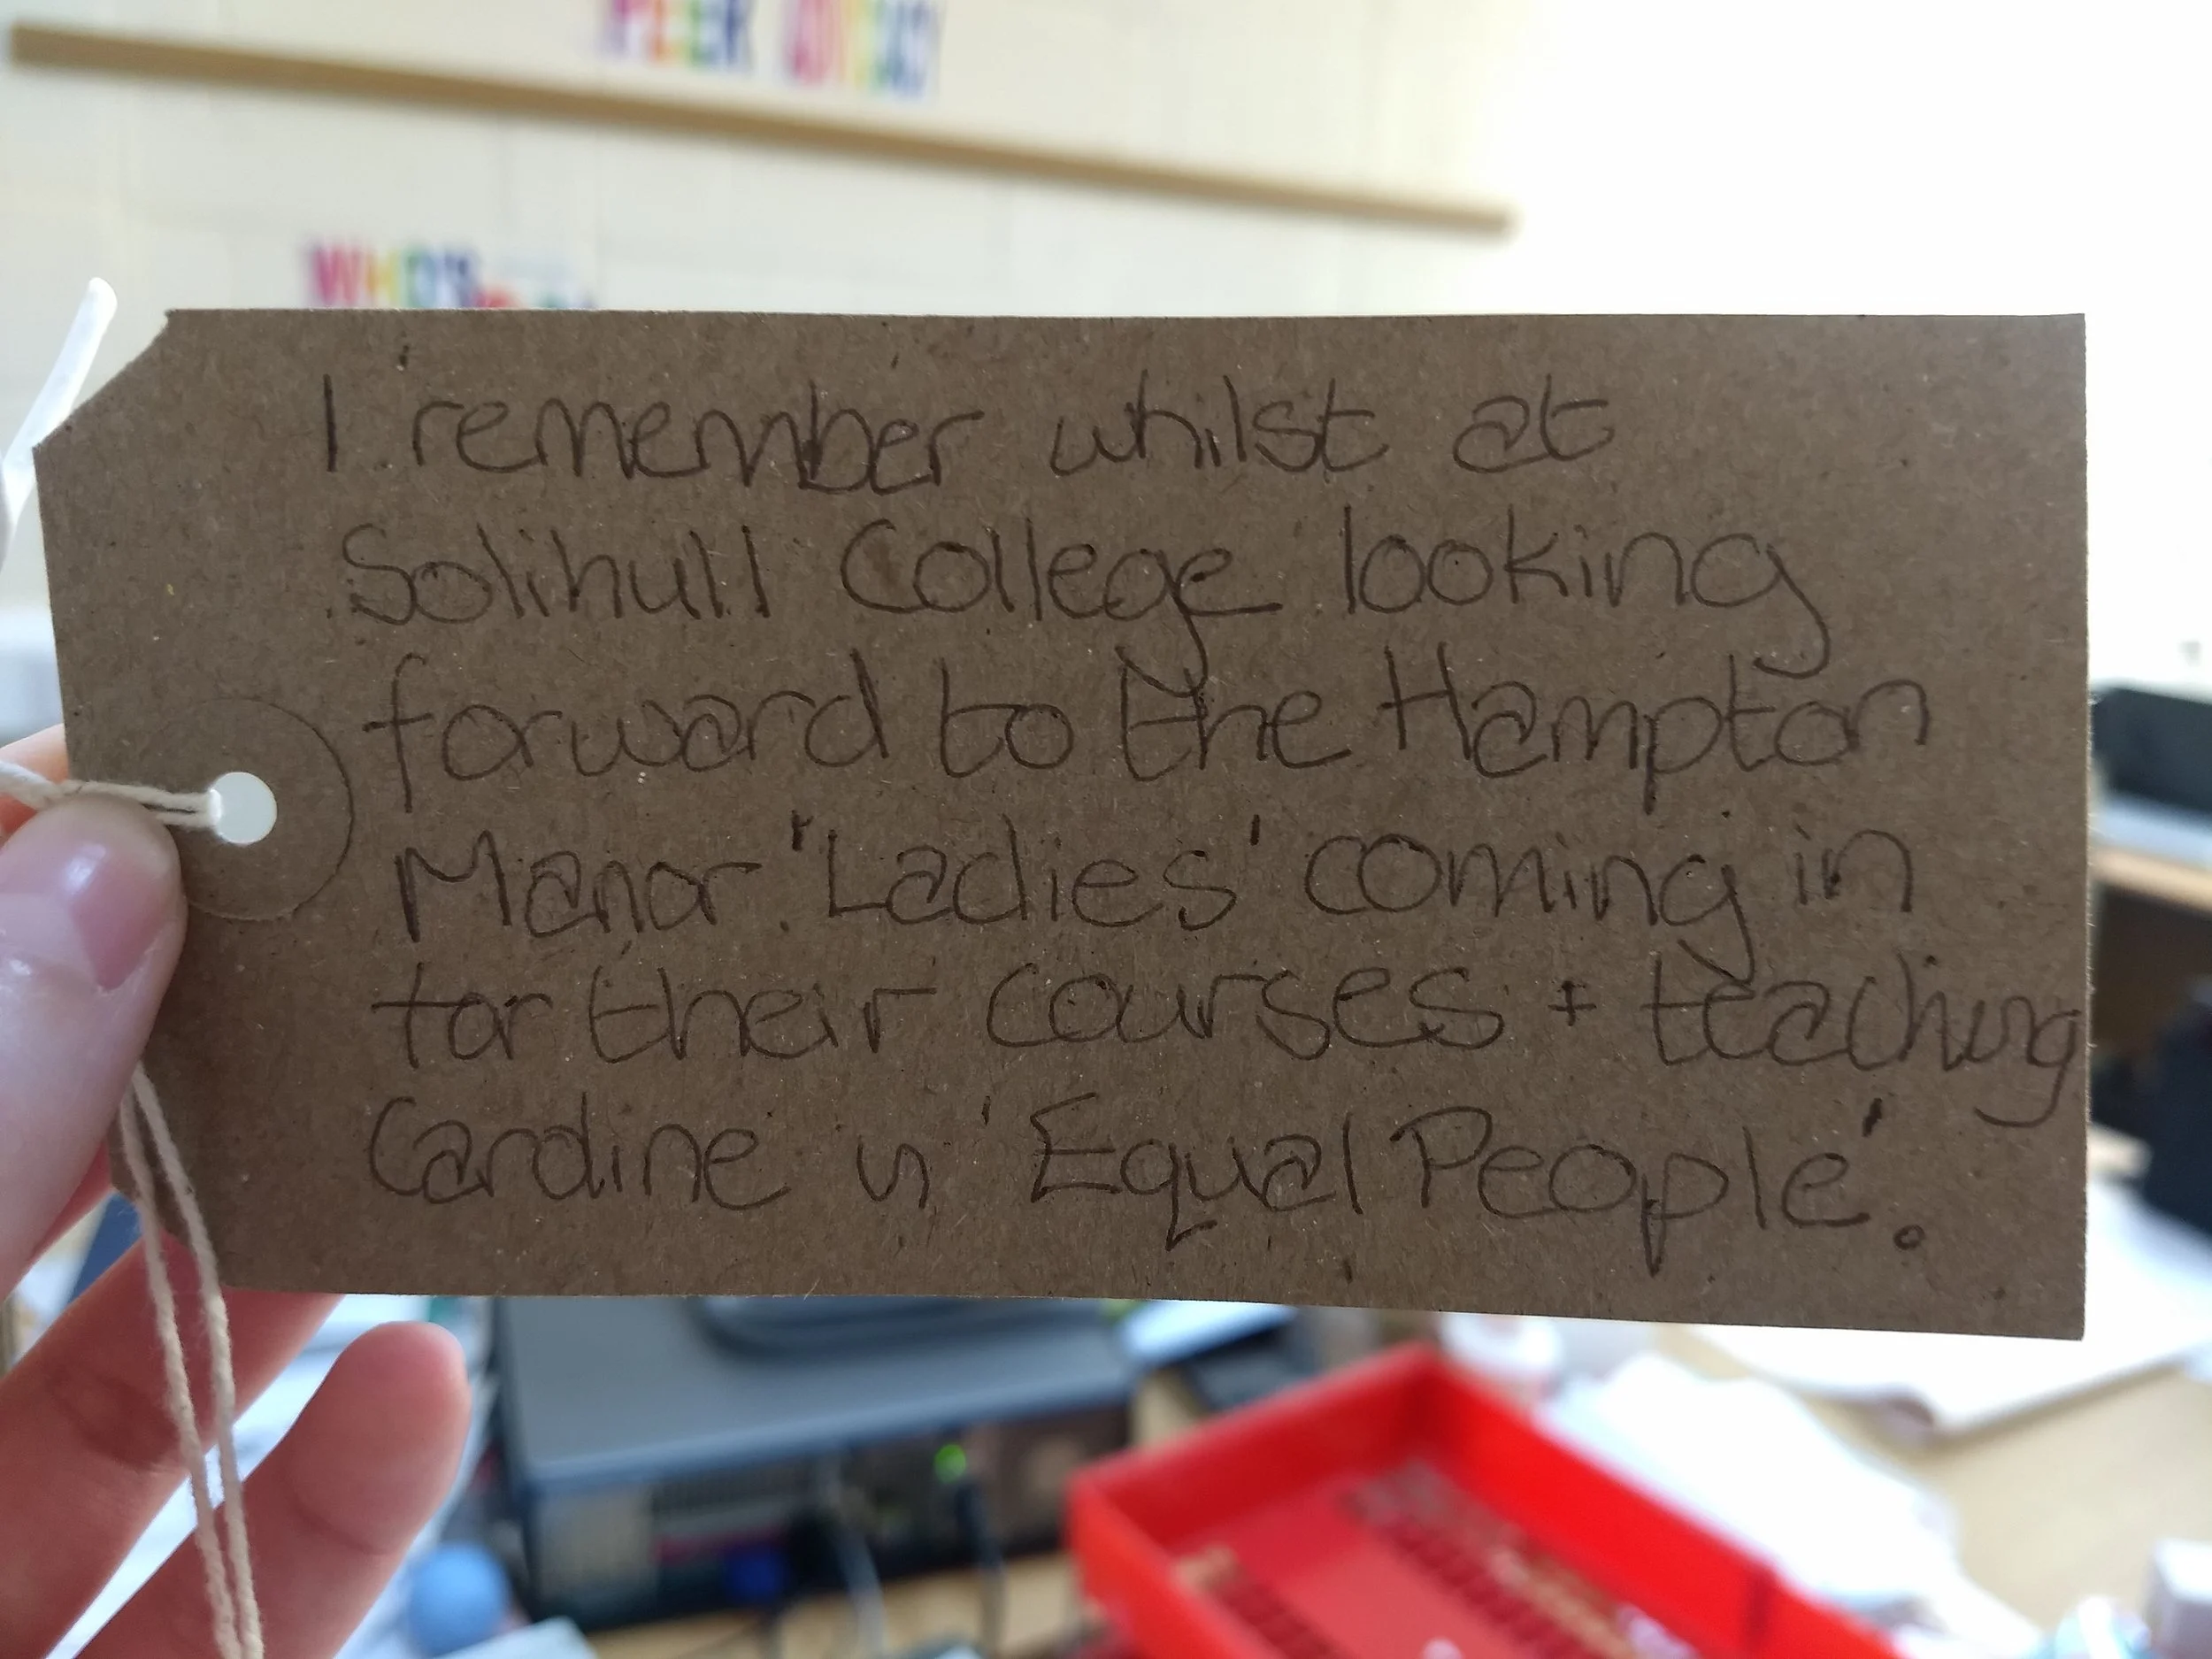 PEER
WHO'S
I remember whilst at
Solihull College looking
forward to the Hampton
Manor 'Ladies' coming in
for their courses + teaching
Caroline in 'Equal People'.